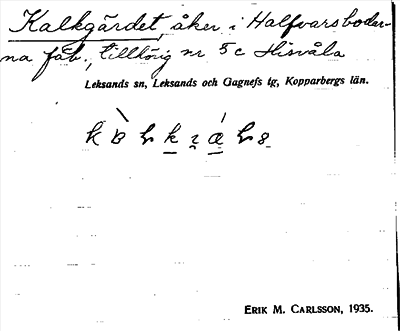 Kalkgärdet, åker i Halfvarsbodar-
na fäb., tillhörig nr 5c Hisvåla
Leksands sn, Leksands och Gagnefs tg, Kopparbergs län.
ERIK M. CARLSSON, 1935.